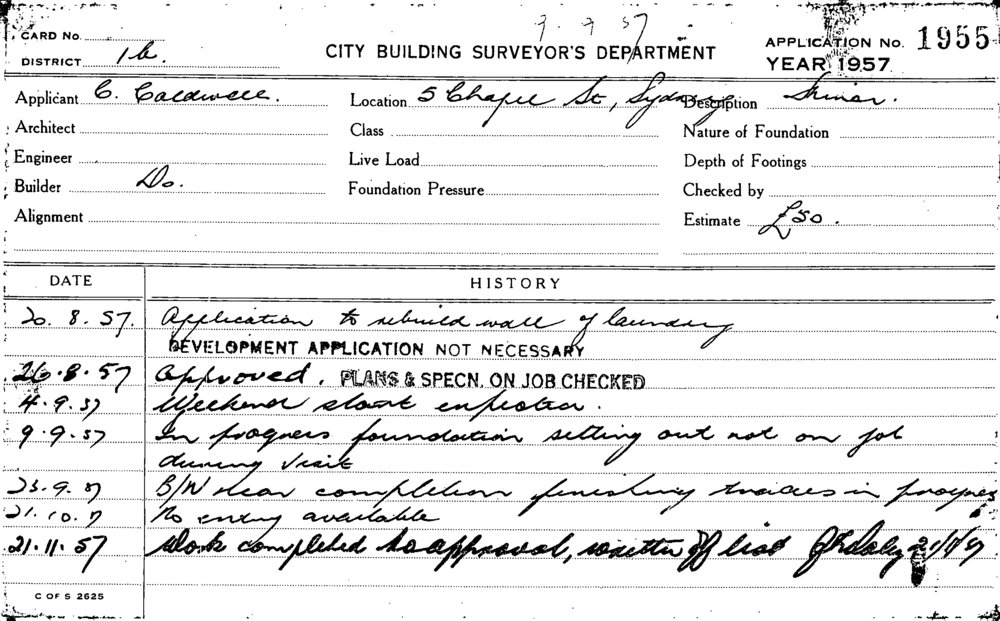 9 9 57
CARD No.
DISTRICT 1b.
CITY BUILDING SURVEYOR'S DEPARTMENT
APPLICATION No. 1955
YEAR 1957
Applicant C. Caldwell. Location 5 Chapel St, Sydney Description Minor.
Architect Class Nature of Foundation
Engineer Live Load Depth of Footings
Builder Do. Foundation Pressure Checked by
Alignment Estimate £50.
DATE HISTORY
20.8.57. Application to rebuild wall of laundry
DEVELOPMENT APPLICATION NOT NECESSARY
26.8.57 Approved. PLANS & SPECN. ON JOB CHECKED
4.9.57 Weekend start expected.
9.9.57 In progress foundation setting out not on job
during visit
23.9.57 B/W near completion finishing trades in progress
21.10.7 No entry available
21.11.57 Work completed to approval, written off list 21/11/57
C OF S 2625